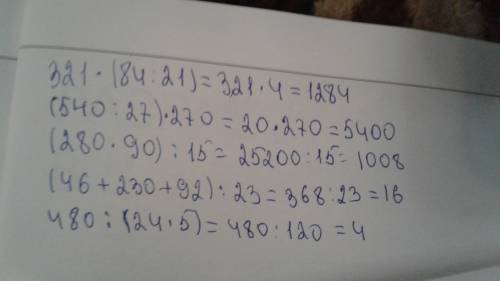 321·(84:21)=321·4=1284
(540:27)·270=20·270=5400
(280·90):15=25200:15=1008
(46+230+92):23=368:23=16
480:(24·5)=480:120=4